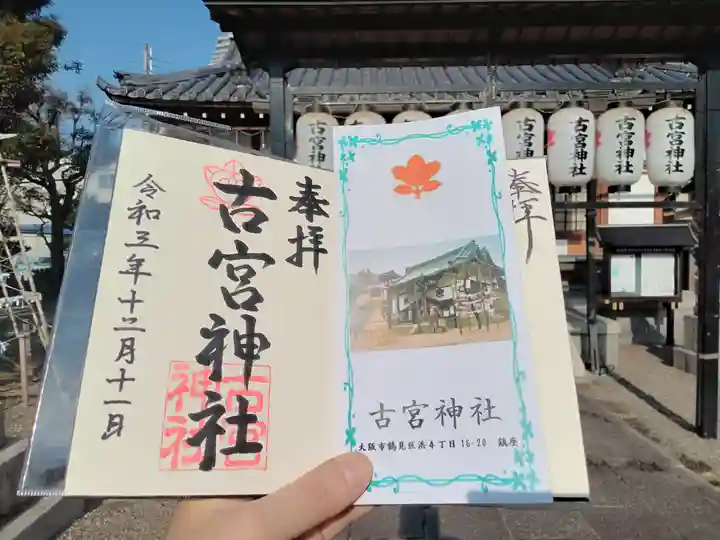 奉拝
古宮神社
古宮
神社
令和三年十二月十一日
古宮神社
大阪市鶴見区浜4丁目16-20 鎮座
奉拝
古宮神社
古宮神社
古宮神社
古宮神社
古宮神社